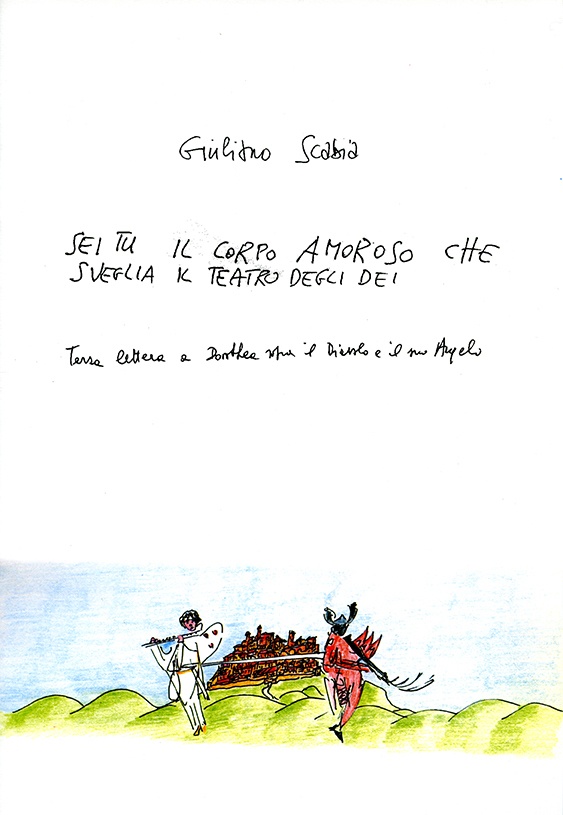 Giuliano Scabia
SEI TU IL CORPO AMOROSO CHE
SVEGLIA IL TEATRO DEGLI DEI
Terza lettera a Dorothea sopra il Diavolo e il suo Angelo